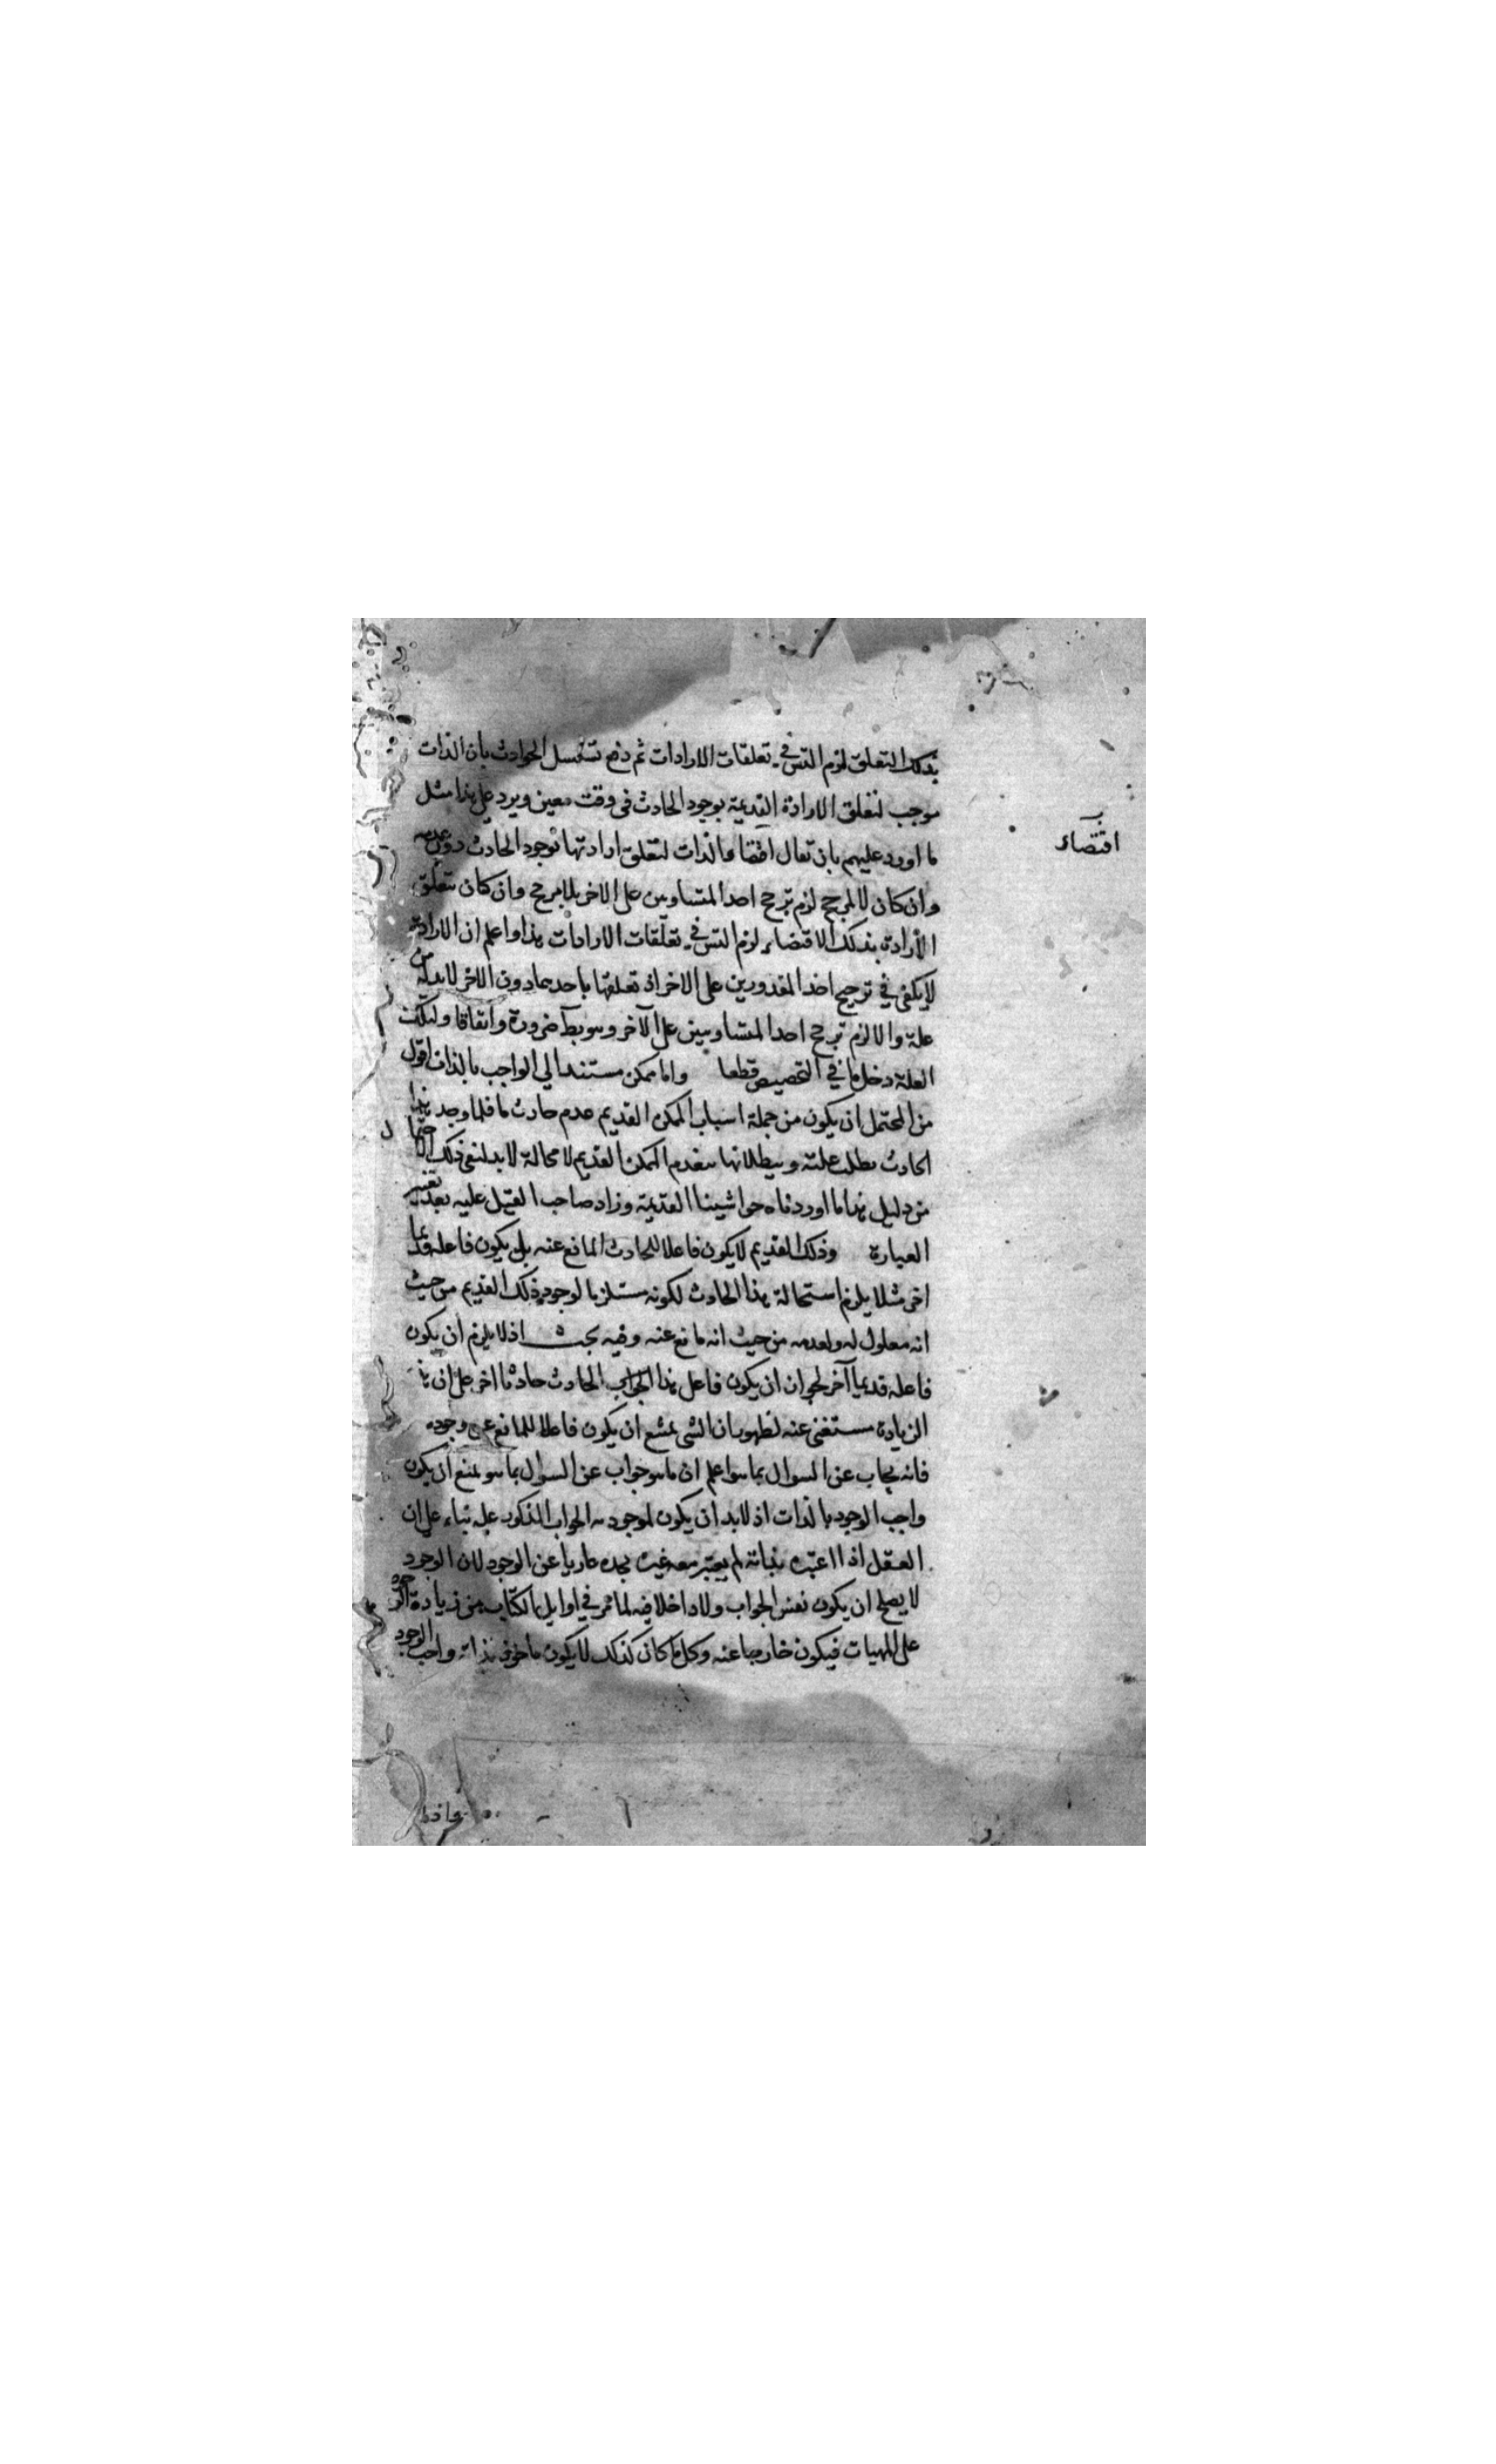 بذلك التعلق لزم التس في تعلقات الارادات ثم دفع تسلسل الحوادث بان الذات
موجب لتعلق الارادة القديمة بوجود الحادث في وقت معين ويرد على هذا مثل
ما اورد عليهم بان تعال اقتضاء الذات لتعلق ارادتها بوجود الحادث دون عدمه
اقتضاء
وان كان لا لمرجح لزم ترجح احد المتساويين على الاخر بلا مرجح وان كان بتعلق
الارادة بذلك الاقتضاء لزم التس في تعلقات الارادات هذا واعلم ان الارادة
لا يكفي في ترجيح احد المقدورين على الاخر اذ تعلقها باحدهما دون الاخر لا بد له من
علة والا لزم ترجح احد المتساويين على الآخر وهو بط ضرورة واتفاقا ولتلك
العلة دخل ما في التخصيص قطعا واما ممكن مستند الي الواجب بالذات اقول
من المحتمل ان يكون من جملة اسباب الممكن القديم عدم حادث ما فلما وجد هذا
الحادث بطلت علته وببطلانها ينعدم الممكن القديم لا محالة لا بد لنفي ذلك
من دليل هذا ما اوردناه حواشينا القديمة وزاد صاحب القيل عليه بعد تغيير
العبارة وذلك القديم لا يكون فاعلا للحادث المانع عنه بل يكون فاعله قديما
اخر مثلا يلزم استحالة هذا الحادث لكونه مستلزما لوجود ذلك القديم من حيث
انه معلول له ولعدمه من حيث انه مانع عنه وفيه بحث اذ لا يلزم ان يكون
فاعله قديما آخر لجواز ان يكون فاعل هذا الحادث حادثا اخر على ان
الزيادة مستغنى عنه لظهور ان الشي يمتنع ان يكون فاعلا للمانع عن وجوده
فانه يجاب عن السوال بما هو اعلم ان ما هو جواب عن السوال بما هو يمنع ان يكون
واجب الوجود بالذات اذ لا بد ان يكون الجواب المذكور بناء على ان
العقل اذا اعتبره بذاته لم يعتبر معه غيره يجده عاريا عن الوجود لان الوجود
لا يصلح ان يكون نفس الجواب ولا داخلا فيه لما مر في اوايل الكتاب من زيادة الوجود
على المهيات فيكون خارجا عنه وكل ما كان كذلك لا يكون ماخوذ بذاته واجب الوجود